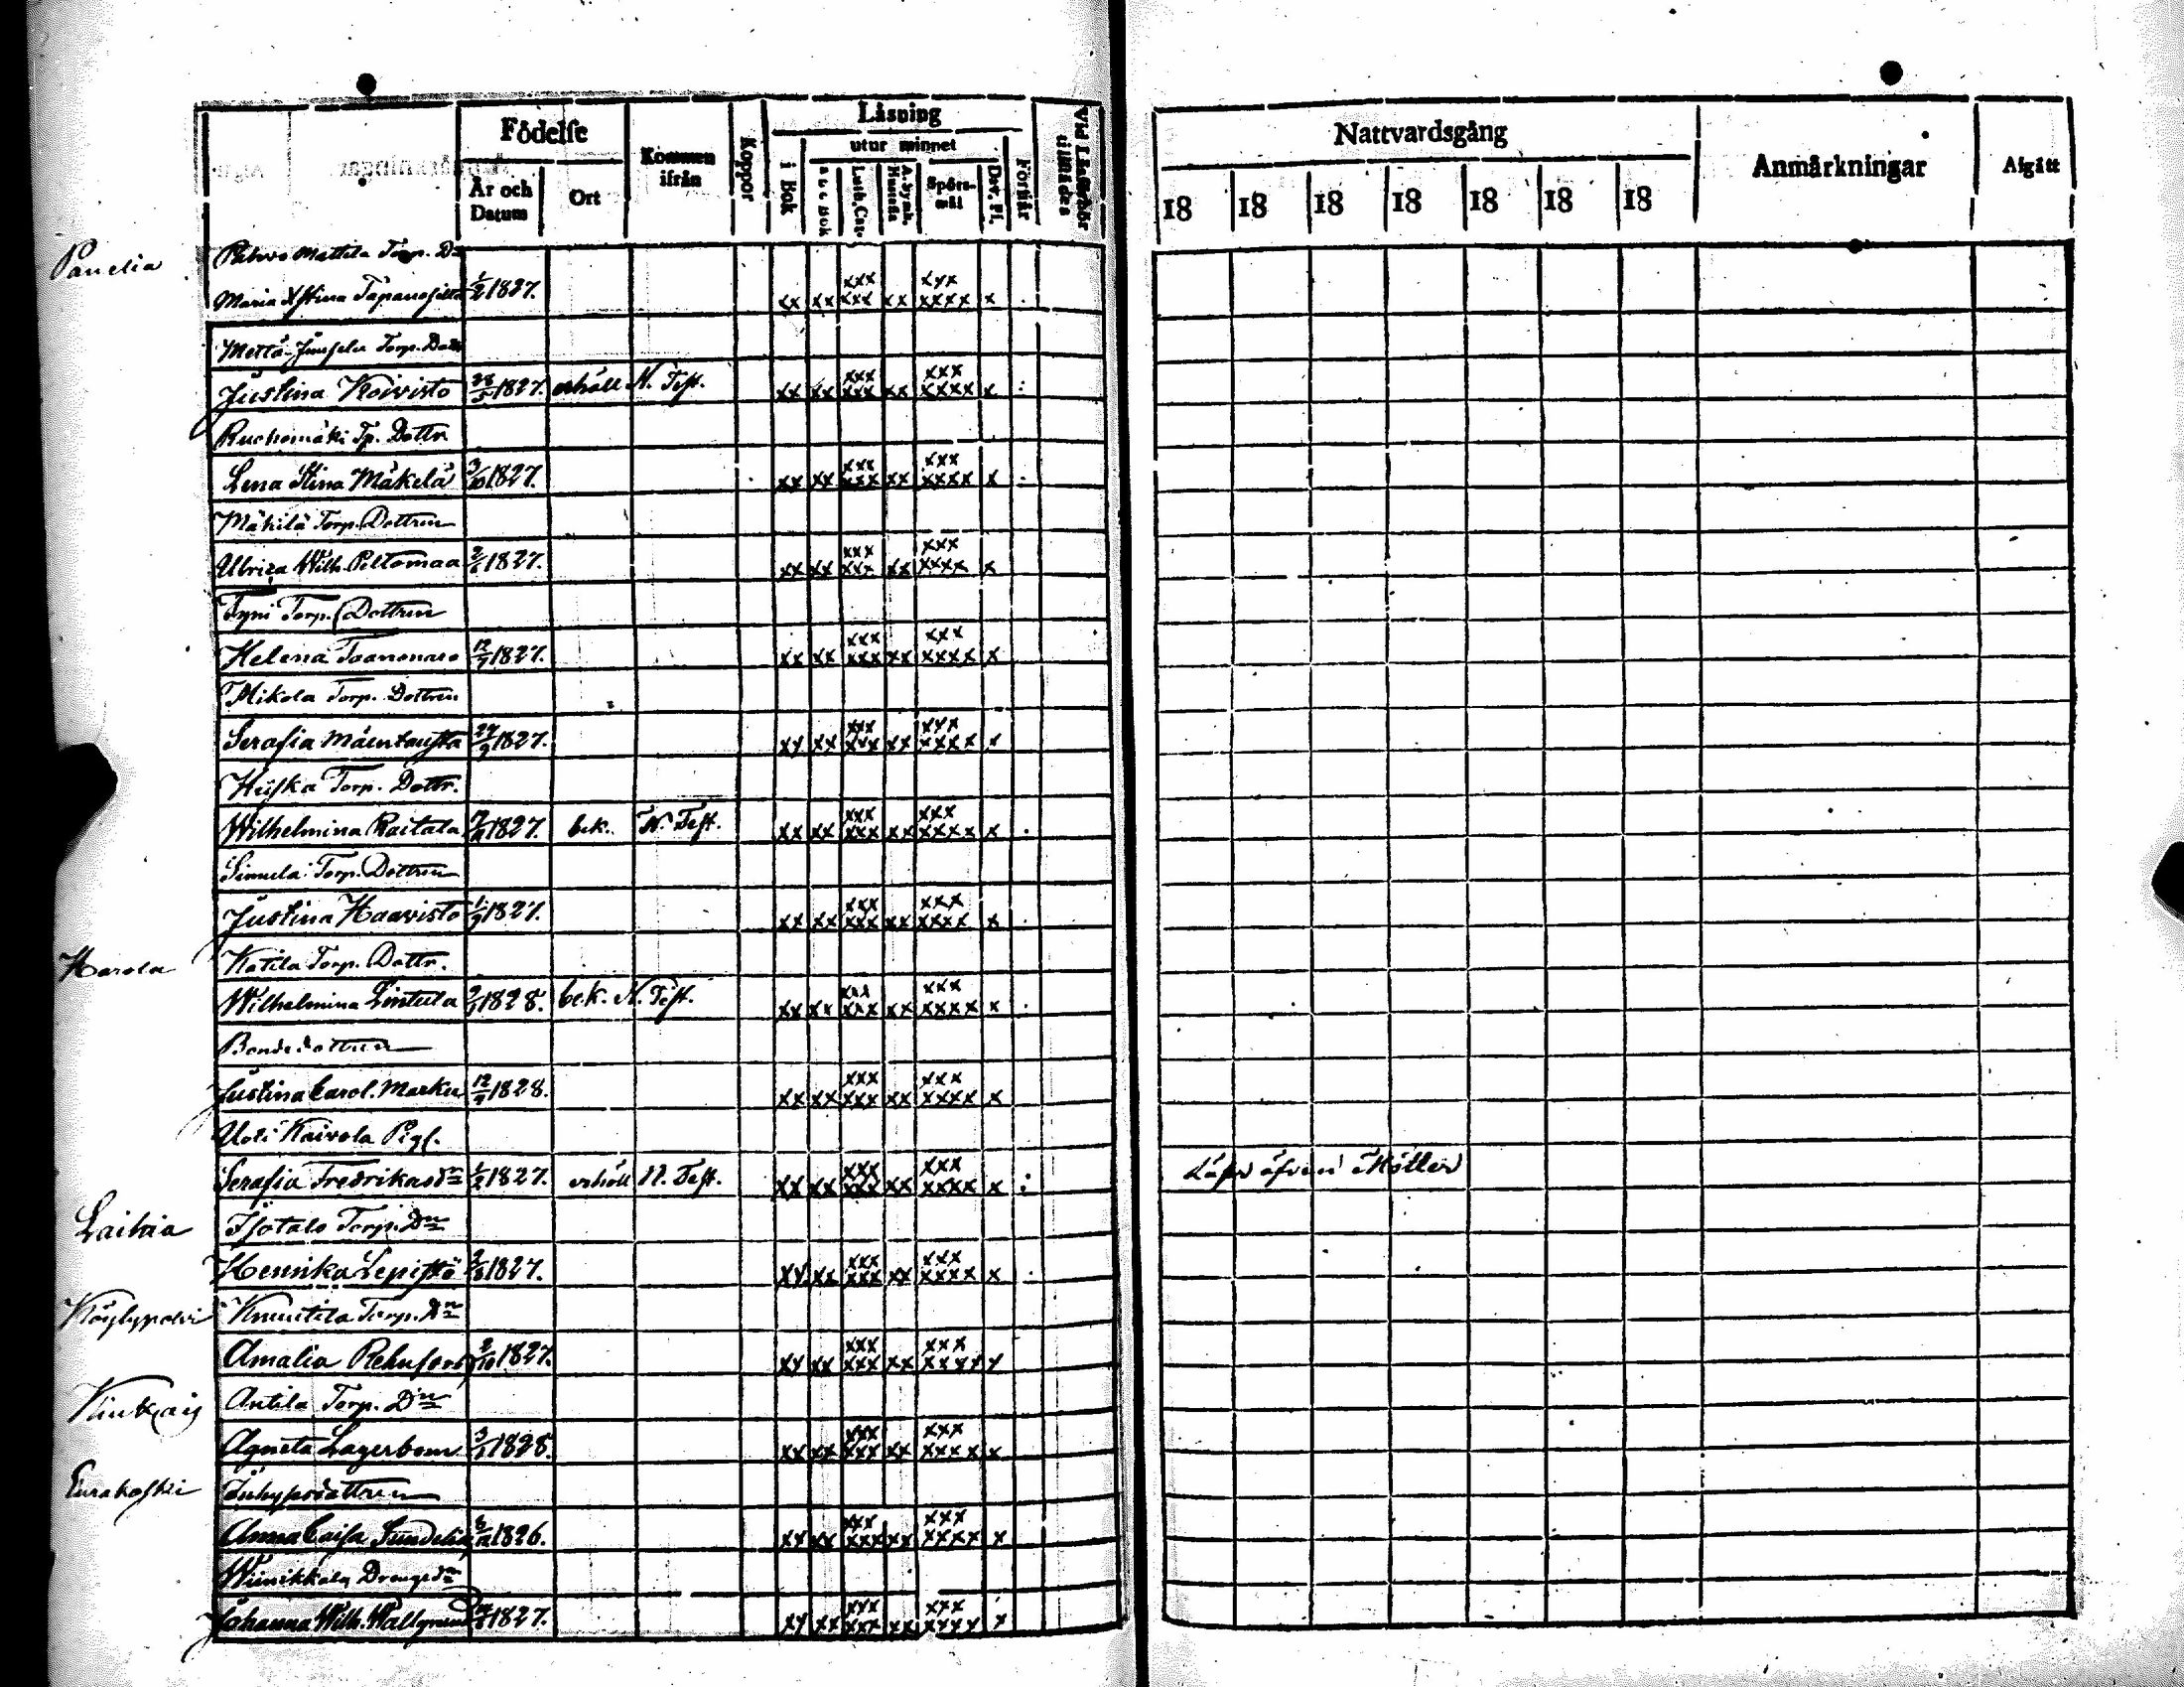 Födelse
Läsning
utur minnet
År och Datum
Ort
Kommen ifrån
Koppor
i Bok
A B C Bok
Luth. Cat.
A. Symb.
Spörsmål
Dav. Ps.
Förstår
Vid Läsförhör tillstädes
Nattvardsgång
Anmärkningar
Afgått
18 18 18 18 18 18 18
Panelia
Mattila Torp. Dn
Maria 1/2 1827. xx xx xxx xxx xx xxx xxxx x
Torp. Dottr
Justina Koivisto 28/5 1827. erhöll N. Test. xx xx xxx xxx xx xxx xxxx x
Ruohomäki Tp. Dottr.
Lena Stina Mäkelä 3/10 1827. xx xx xxx xxx xx xxx xxxx x
Mäkilä Torp. Dottren
Ulrica Wilh. Peltomaa 2/6 1827. xx xx xxx xxx xx xxx xxxx x
Tyni Torp. Dottren
Helena 12/7 1827. xx xx xxx xxx xx xxx xxxx x
Mikola Torp. Dottren
Serafia 27/9 1827. xx xx xxx xxx xx xxx xxxx x
Torp. Dottr.
Wilhelmina Raitala 1827. bek. N. Test. xx xx xxx xxx xx xxx xxxx x
Simula Torp. Dottren
Justina Haavisto 1/9 1827. xx xx xxx xxx xx xxx xxxx x
Harola
Katila Torp. Dottr.
Wilhelmina Lintula 2/1 1828. bek. N. Test. xx xx xxx xxx xx xxx xxxx x
Bondedottren
Justina Carol. Marku 1828. xx xx xxx xxx xx xxx xxxx x
Uoti Kaivola Pig.
Serafia Fredriksdr 1827. erhöll N. Test. xx xx xxx xxx xx xxx xxxx x Läser äfven
Laihia
Isotalo Torp. Dn
Hennika Lepistö 1827. xx xx xxx xxx xx xxx xxxx x
Köylypolvi
Knuutila Torp. Dn
Amalia 2/10 1827. xx xx xxx xxx xx xxx xxxx x
Antila Torp. Dn
Agneta Lagerbom 3/1 1828. xx xx xxx xxx xx xxx xxxx x
Eurakoski
Inhysdottren
Anna Caisa 1826. xx xx xxx xxx xx xxx xxxx x
Wiinikkala Drengdn
Johanna Wilh. 1827. xx xx xxx xxx xx xxx xxxx x